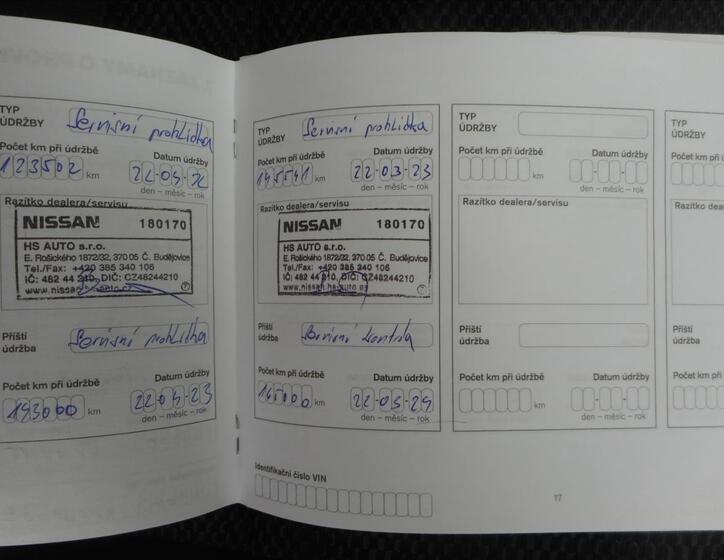 TYP
ÚDRŽBY
Servisní prohlídka
Počet km při údržbě
Datum údržby
123502 km
22-04-22
den – měsíc – rok
Razítko dealera/servisu
NISSAN 180170
HS AUTO s.r.o.
E. Rošického 1872/32, 370 05 Č. Budějovice
Tel./Fax: +420 385 340 106
IČ: 482 44 210, DIČ: CZ48244210
Příští
údržba
Servisní prohlídka
Počet km při údržbě
Datum údržby
143000 km
22-04-23
den – měsíc – rok
TYP
ÚDRŽBY
Servisní prohlídka
Počet km při údržbě
Datum údržby
145541 km
22-03-23
den – měsíc – rok
Razítko dealera/servisu
NISSAN 180170
HS AUTO s.r.o.
E. Rošického 1872/32, 370 05 Č. Budějovice
Tel./Fax: +420 385 340 106
IČ: 482 44 210, DIČ: CZ48244210
www.nissan.hs-auto.cz
Příští
údržba
Servisní kontrola
Počet km při údržbě
Datum údržby
165000 km
22-03-24
den – měsíc – rok
Identifikační číslo VIN
TYP
ÚDRŽBY
Počet km při údržbě
Datum údržby
km
den – měsíc – rok
Razítko dealera/servisu
Příští
údržba
Počet km při údržbě
Datum údržby
km
den – měsíc – rok
17
TYP
ÚDRŽBY
Počet km při
Razítko
Příští
údržba
Počet km při